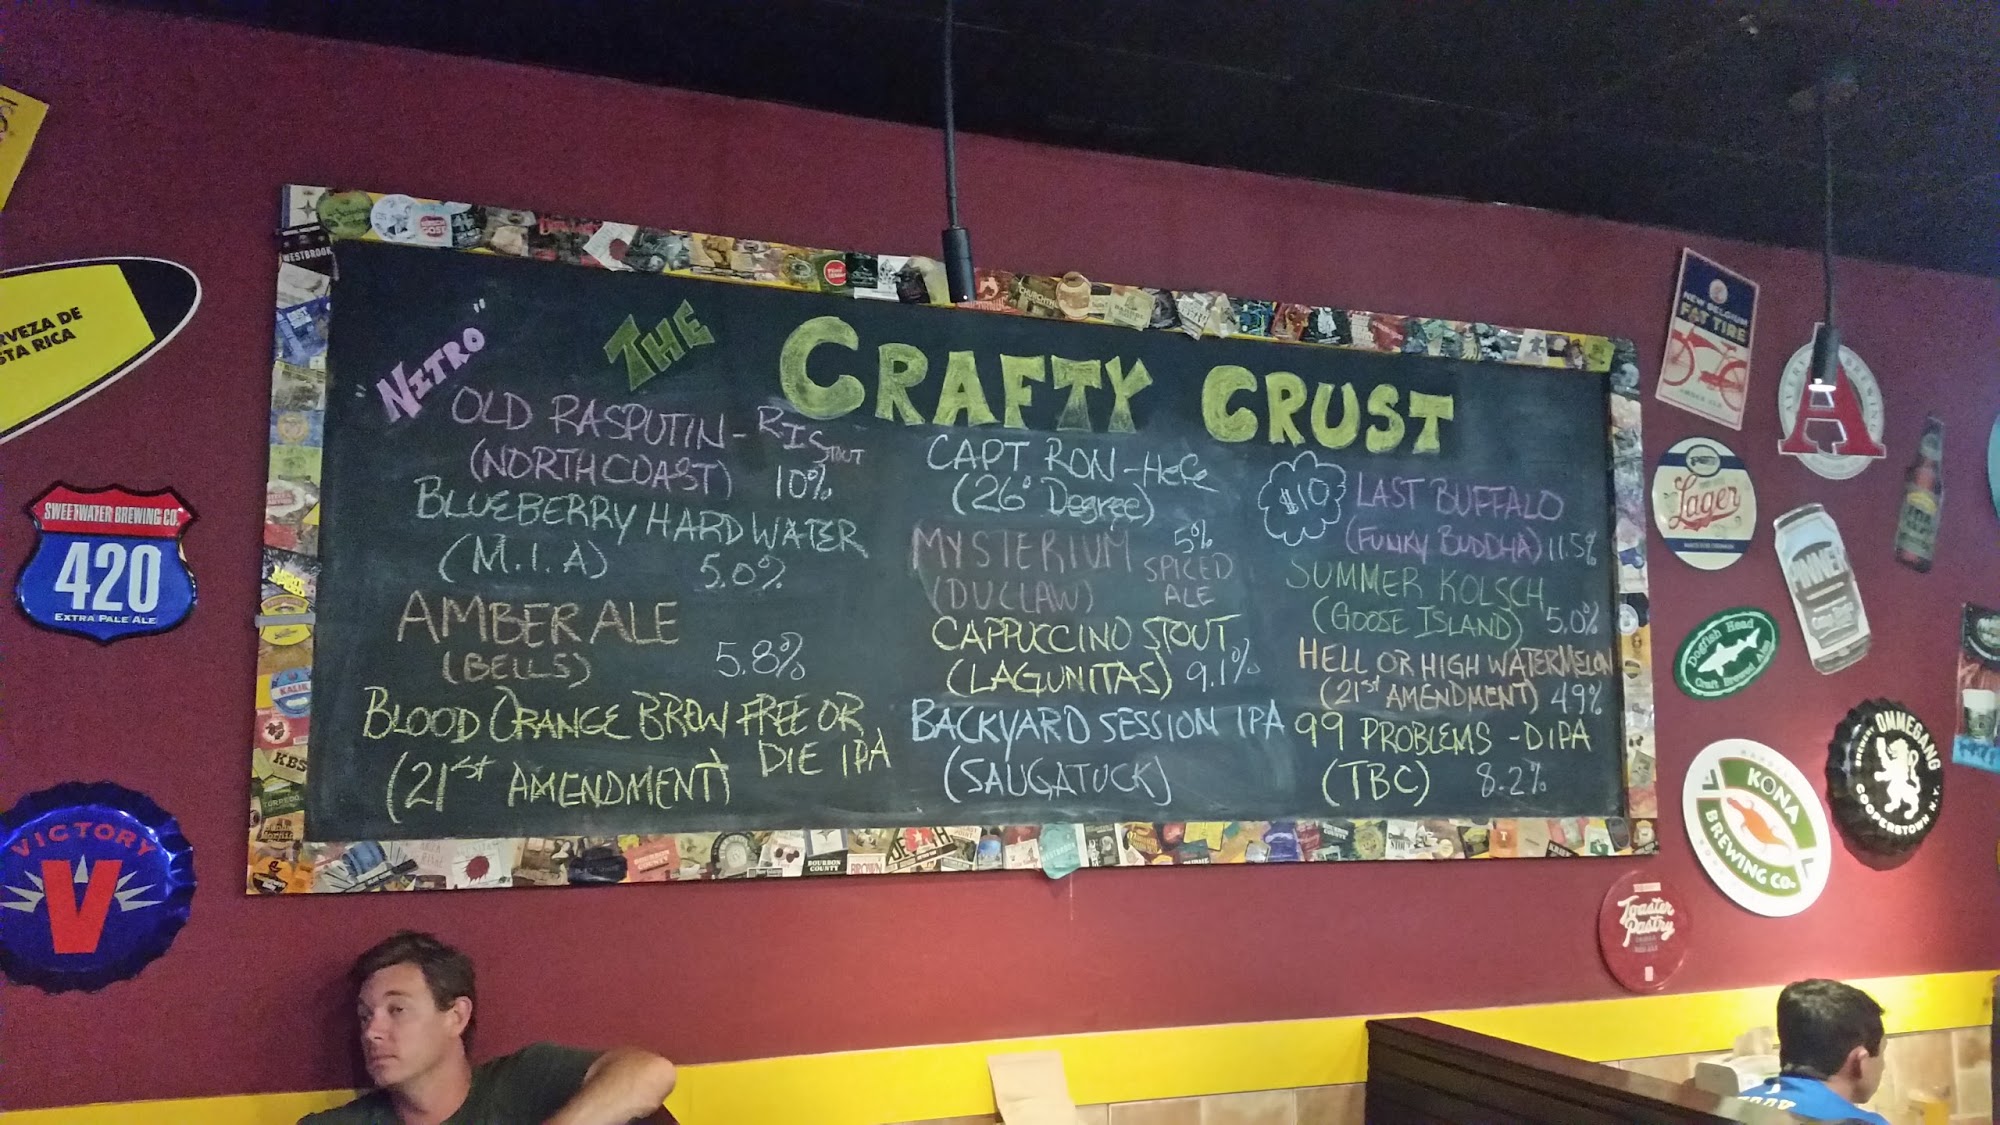 THE CRAFTY CRUST
NITRO"
OLD RASPUTIN - RIS STOUT
(NORTH COAST) 10%
BLUEBERRY HARD WATER
(M.I.A) 5.0%
AMBER ALE
(BELLS) 5.8%
BLOOD ORANGE BREW FREE OR
DIE IPA
(21st AMENDMENT)
CAPT RON - HeFe
(26° Degree)
5%
MYSTERIUM SPICED
(DUCLAW) ALE
CAPPUCCINO STOUT
(LAGUNITAS) 9.1%
BACKYARD SESSION IPA
(SAUGATUCK)
$10 LAST BUFFALO
(FUNKY BUDDHA) 11.5%
SUMMER KOLSCH
(GOOSE ISLAND) 5.0%
HELL OR HIGH WATERMELON
(21st AMENDMENT) 49%
99 PROBLEMS - DIPA
(TBC) 8.2%
RVEZA DE
STA RICA
SWEETWATER BREWING CO.
420
EXTRA PALE ALE
VICTORY
V
WESTBROOK
KALIK
KBS
TORPEDO
BOURBON
COUNTY
BROWN
NEW BELGIUM
FAT TIRE
AMBER ALE
A
Lager
PINNER
Dogfish Head
Craft Brewed Ales
KONA
BREWING CO.
BREWERY OMMEGANG
COOPERSTOWN N.Y.
Toaster
Pastry